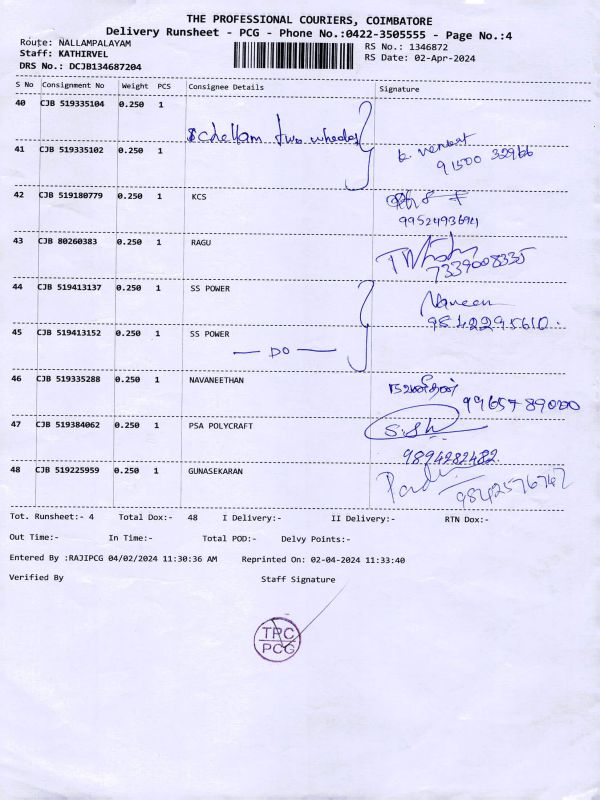 THE PROFESSIONAL COURIERS, COIMBATORE
Delivery Runsheet - PCG - Phone No.:0422-3505555 - Page No.:4
Route: NALLAMPALAYAM
Staff: KATHIRVEL
DRS No.: DCJB134687204
RS No.: 1346872
RS Date: 02-Apr-2024
S No Consignment No Weight PCS Consignee Details Signature
40 CJB 519335104 0.250 1
two wheeler
41 CJB 519335102 0.250 1
K. Venkat
91500 32966
42 CJB 519180779 0.250 1 KCS
9952493694
43 CJB 80260383 0.250 1 RAGU
7339008335
44 CJB 519413137 0.250 1 SS POWER
Naveen
9842295610
45 CJB 519413152 0.250 1 SS POWER
— DO —
46 CJB 519335288 0.250 1 NAVANEETHAN
நவனீதன்
9965789000
47 CJB 519384062 0.250 1 PSA POLYCRAFT
9894282482
48 CJB 519225959 0.250 1 GUNASEKARAN
9842576747
Tot. Runsheet:- 4 Total Dox:- 48 I Delivery:- II Delivery:- RTN Dox:-
Out Time:- In Time:- Total POD:- Delvy Points:-
Entered By :RAJIPCG 04/02/2024 11:30:36 AM Reprinted On: 02-04-2024 11:33:40
Verified By Staff Signature
TPC
PCG